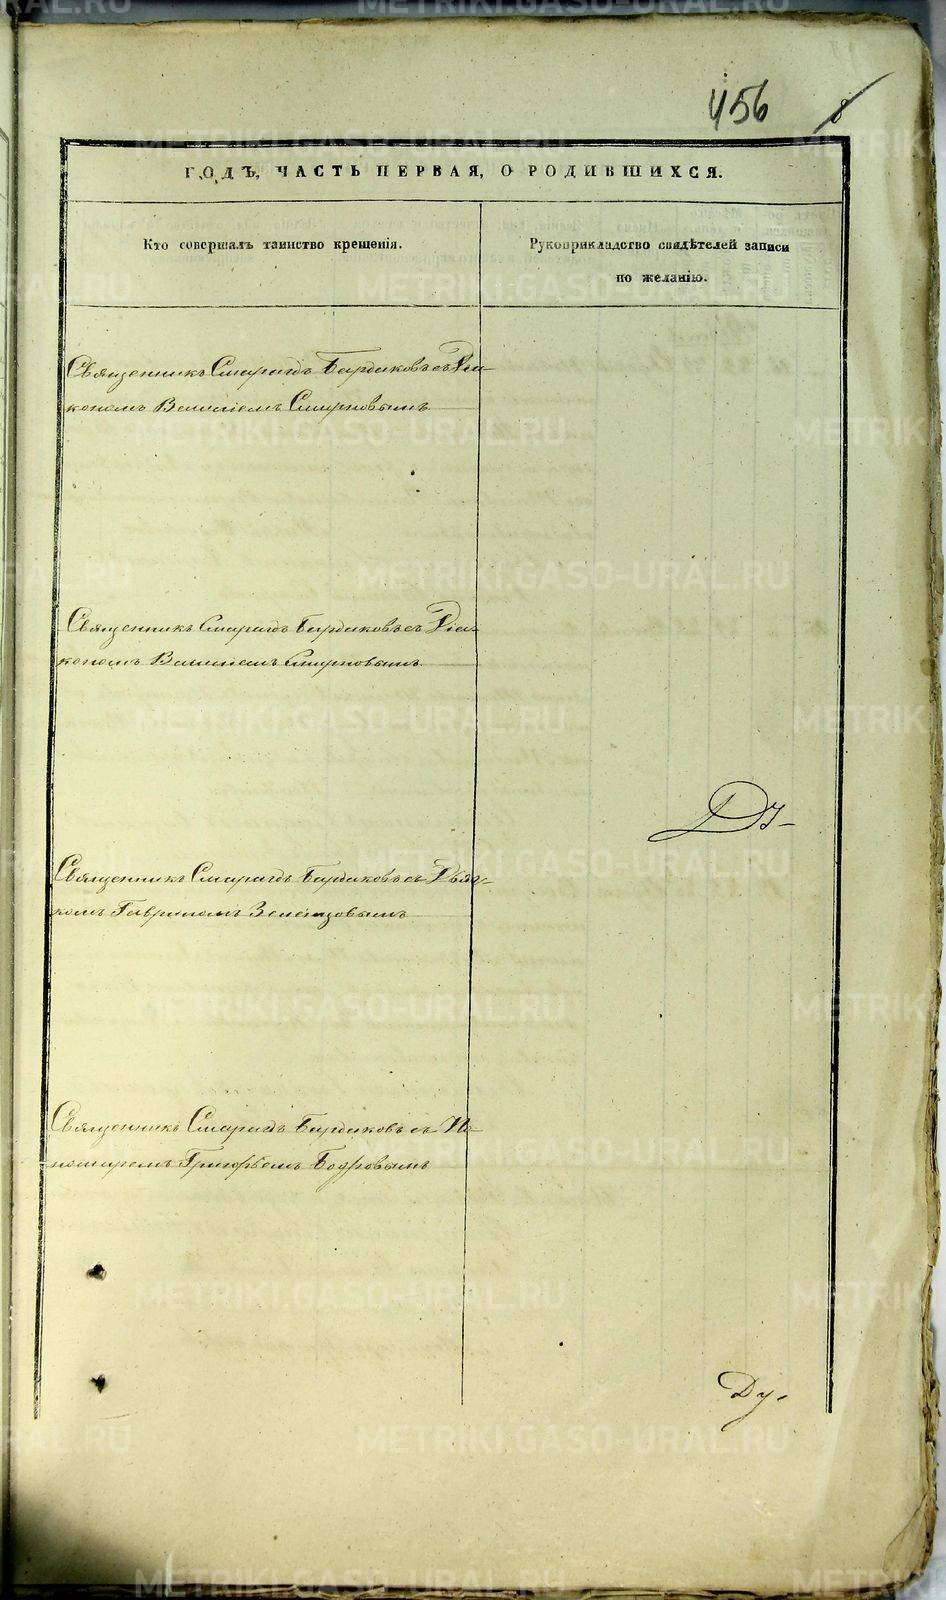 456 8
ГОДЪ, ЧАСТЬ ПЕРВАЯ, О РОДИВШИХСЯ.
Кто совершалъ таинство крещенія.
Рукоприкладство свидѣтелей записи
по желанію.
Священникъ Смарагдъ Бардаковъ съ Діа-
кономъ Василіемъ Смирновымъ
Священникъ Смарагдъ Бардаковъ съ Діа-
кономъ Василіемъ Смирновымъ
Священникъ Смарагдъ Бардаковъ съ Дьяч-
комъ Гавриломъ
Священникъ Смарагдъ Бардаковъ съ По-
номаремъ Григорьемъ Бодровымъ
METRIKI.GASO-URAL.RU